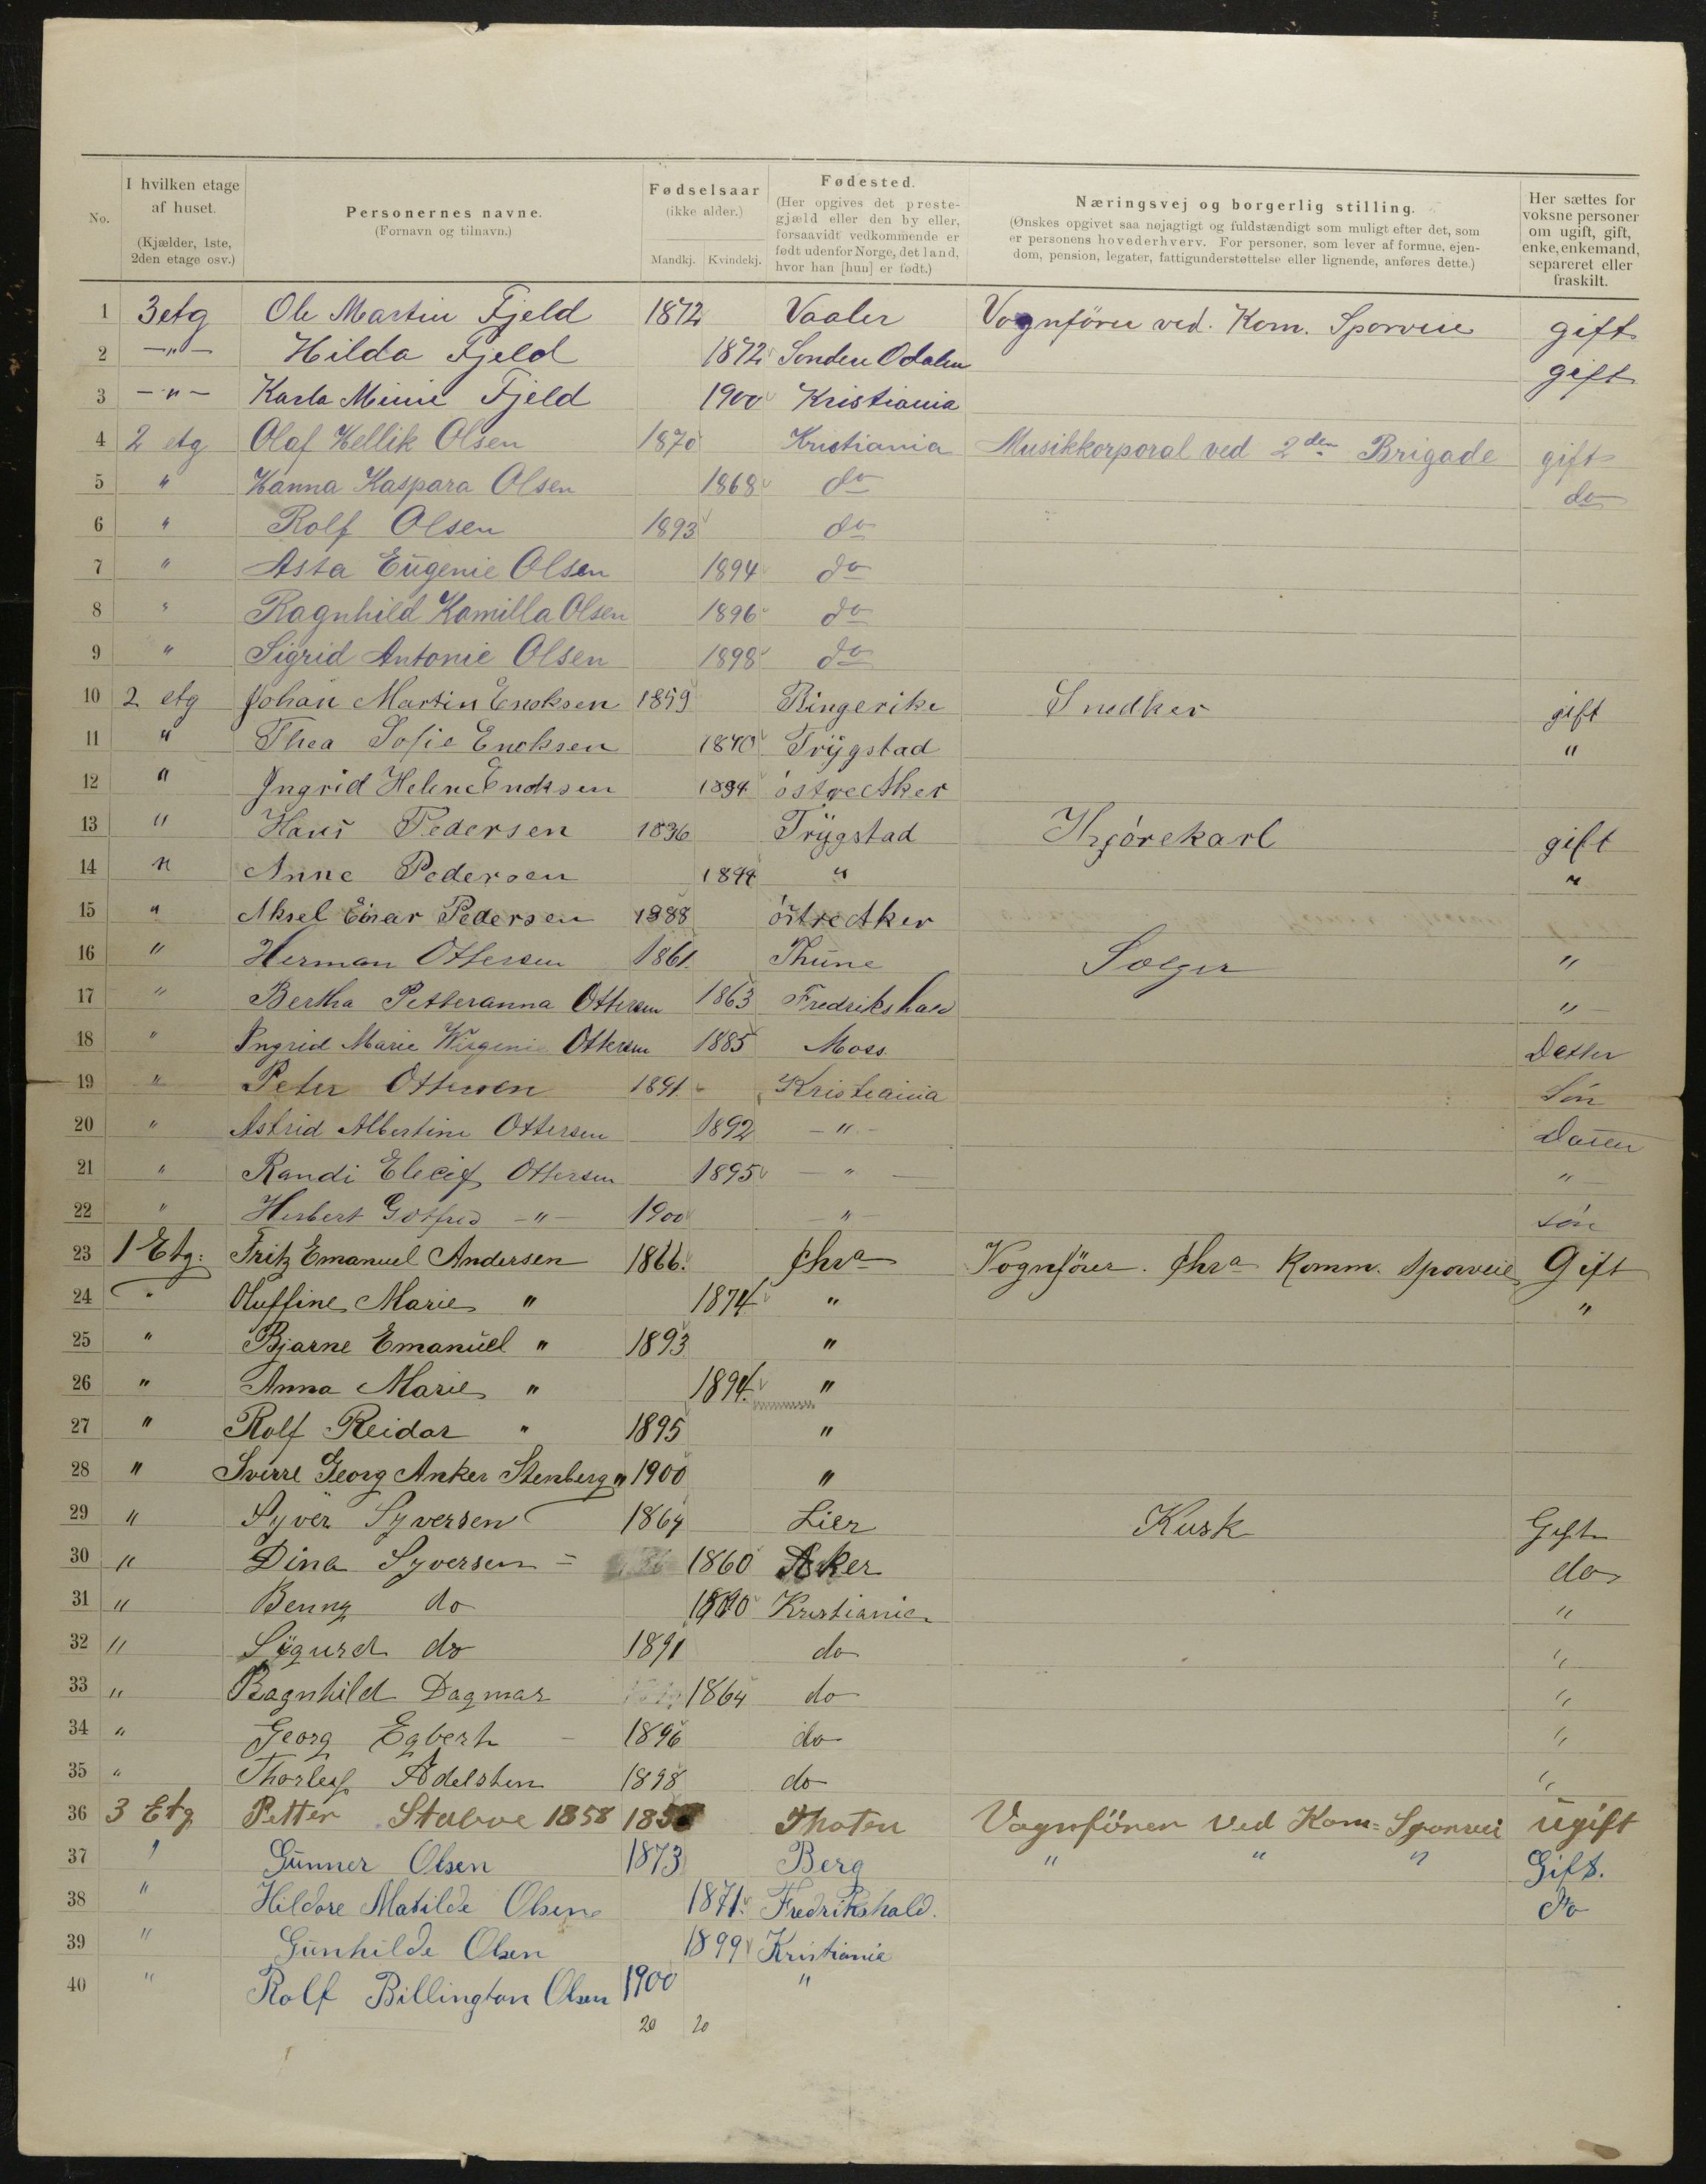 No. | I hvilken etage af huset. (Kjælder, 1ste, 2den etage osv.) | Personernes navne. (Fornavn og tilnavn.) | Fødselsaar (ikke alder.) Mandkj. Kvindekj. | Fødested. (Her opgives det prestegjæld eller den by eller, forsaavidt vedkommende er født udenfor Norge, det land, hvor han [hun] er født.) | Næringsvej og borgerlig stilling. (Ønskes opgivet saa nøjagtigt og fuldstændigt som muligt efter det, som er personens hovederhverv. For personer, som lever af formue, ejendom, pension, legater, fattigunderstøttelse eller lignende, anføres dette.) | Her sættes for voksne personer om ugift, gift, enke, enkemand, separeret eller fraskilt.
1 3 etg Ole Martin Fjeld 1872 Vaaler Vognfører ved. Kom. Sporveie gift
2 -"- Hilda Fjeld 1872 Sondre Odalen gift
3 -"- Karla Minie Fjeld 1900 Kristiania
4 2 etg Olaf Hellik Olsen 1870 Kristiania Musikkorporal ved 2den Brigade gift
5 " Hanna Kaspara Olsen 1868 do do
6 " Rolf Olsen 1893 do
7 " Asta Eugenie Olsen 1894 do
8 " Ragnhild Kamilla Olsen 1896 do
9 " Sigrid Antonie Olsen 1898 do
10 2 etg Johan Martin Ericksen 1859 Ringerike Snedker gift
11 " Thea Sofie Ericksen Trygstad "
12 " Ingrid Helene Ericksen 1894 östre Aker
13 " Hans Pedersen 1836 Trygstad Kjörekarl gift
14 " Anne Pedersen " "
15 " Aksel Einar Pedersen 1888 östre Aker
16 " Herman Ottersen 1861. Thune "
17 " Bertha Petteranna Ottersen 1863 Fredrikshald "
18 " Ingrid Marie Wirgenie Ottersen 1885 Moss Datter
19 " Peter Ottersen 1891 Kristiania Sön
20 " Astrid Albertine Ottersen 1892 -"- Datter
21 " Randi Ottersen 1895 -"- "
22 " Herbert Gotfred -"- 1900 -"- sön
23 1 Etg: Fritz Emanuel Andersen 1866. Chra Vognförer. Chra Komm. Sporveie Gift
24 " Oluffine Marie " 1874 " "
25 " Bjarne Emanuel " 1893 "
26 " Anna Marie " 1894. "
27 " Rolf Reidar " 1895 "
28 " Sverre Georg Anker Stenberg " 1900 "
29 " Syver Syversen 1864 Lier Kusk Gift
30 " Dina Syversen = 1860 Aker do
31 " Benny do Kristiania "
32 " Sigurd do 1891 do "
33 " Ragnhild Dagmar 1864 do "
34 " Georg Egbert - 1896 do "
35 " Thorleif Adelsten 1898 do "
36 3 Etg Petter 1858 Thoten Vognförer ved Kom= Sporvei ugift
37 " Gunner Olsen 1873 Berg " " " Gift.
38 " Hildore Matilde Olsen 1871. Fredrikshald. do
39 " Gunhilde Olsen 1899 Kristiania
40 " Rolf Billington Olsen 1900 "
20 20